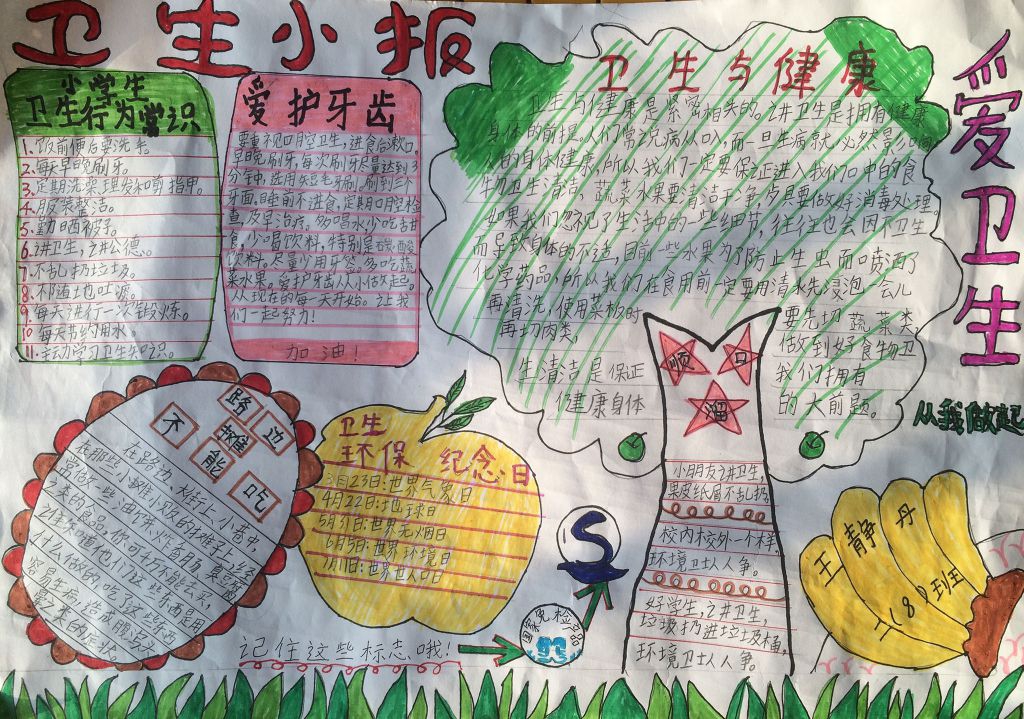 卫生小报
小学生
卫生行为常识
1.饭前便后要洗手。
2.每天早晚刷牙。
3.定期洗菜理发和剪指甲。
4.服装整洁。
5.勤晒被子。
6.讲卫生,讲公德。
7.不乱扔垃圾。
8.不随地吐痰。
9.每天进行一次锻炼。
10.每天节约用水。
11.主动学习卫生知识。
爱护牙齿
要重视口腔卫生,进食后漱口,
早晚刷牙,每次刷牙尽量达到3
分钟,选用尖短毛牙刷。刷到三个
牙面,睡前不进食,定期口腔检
查,及早治疗,多喝水少吃甜
食,少喝饮料,特别是碳酸
饮料。尽量少用牙签。多吃蔬
菜水果。爱护牙齿从小做起。
从现在的每一天开始。让我
们一起努力!
加油!
卫生与健康
卫生与健康是紧密相关的。讲卫生是拥有健康
身体的前提。人们常说病从口入,而一旦生病就必然是影响
人的身体健康,所以我们一定要保证进入我们口中的食
物卫生清洁,蔬菜水果要清洁干净,炊具要做好消毒处理。
如果我们忽视了生活中的一些细节,往往也会因不卫生
而导致自体的不适,目前一些水果为了防止生虫而喷洒了
化学药品,所以我们在食用前一定要用清水先浸泡一会儿
再清洗,使用菜板时 要先切蔬菜类,
再切肉类, 做到好食物卫
生清洁是保证 我们拥有
健康身体 的大前题。
爱卫生
从我做起
路边
摊
不能吃
在路边、大街上、小巷中
在那些小摊小贩的摊子上,经
常做一些油饼、火烧、香肠、臭豆腐
之类的食品,你可千万不能去买,
谁知道他们这些东西是用
什么做的呢,这些东西
容易生病,造成腹泻
之类的症状。
卫生
环保 纪念日
3月23日:世界气象日
4月22日:地球日
5月31日:世界无烟日
6月5日:世界环境日
7月11日:世界世人口日
记住这些标志哦!
S
国家免检产品
顺口
溜
小朋友讲卫生,
果皮纸屑不乱扔。
校内校外一个样,
环境卫士人人争。
好学生,讲卫生,
垃圾扔进垃圾桶,
环境卫士人人争。
王静丹
一(8)班